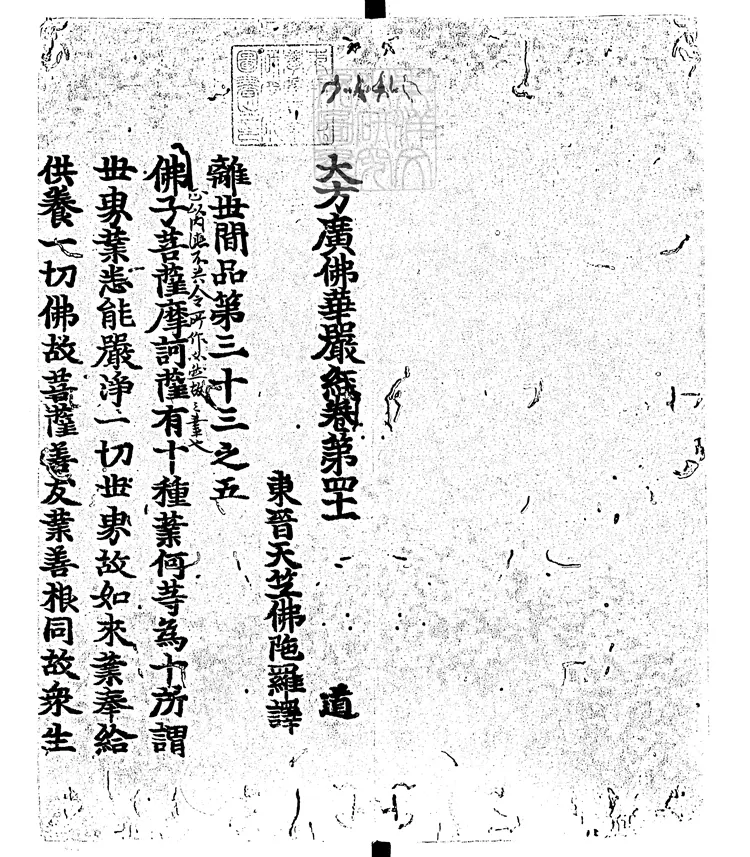 大方廣佛華嚴經卷第四十一 道
東晉天竺佛陁羅譯
離世間品第三十三之五
佛子菩薩摩訶薩有十種業何等為十所謂
世界業悉能嚴淨一切世界故如來業奉給
供養一切佛故菩薩善友業善根同故衆生